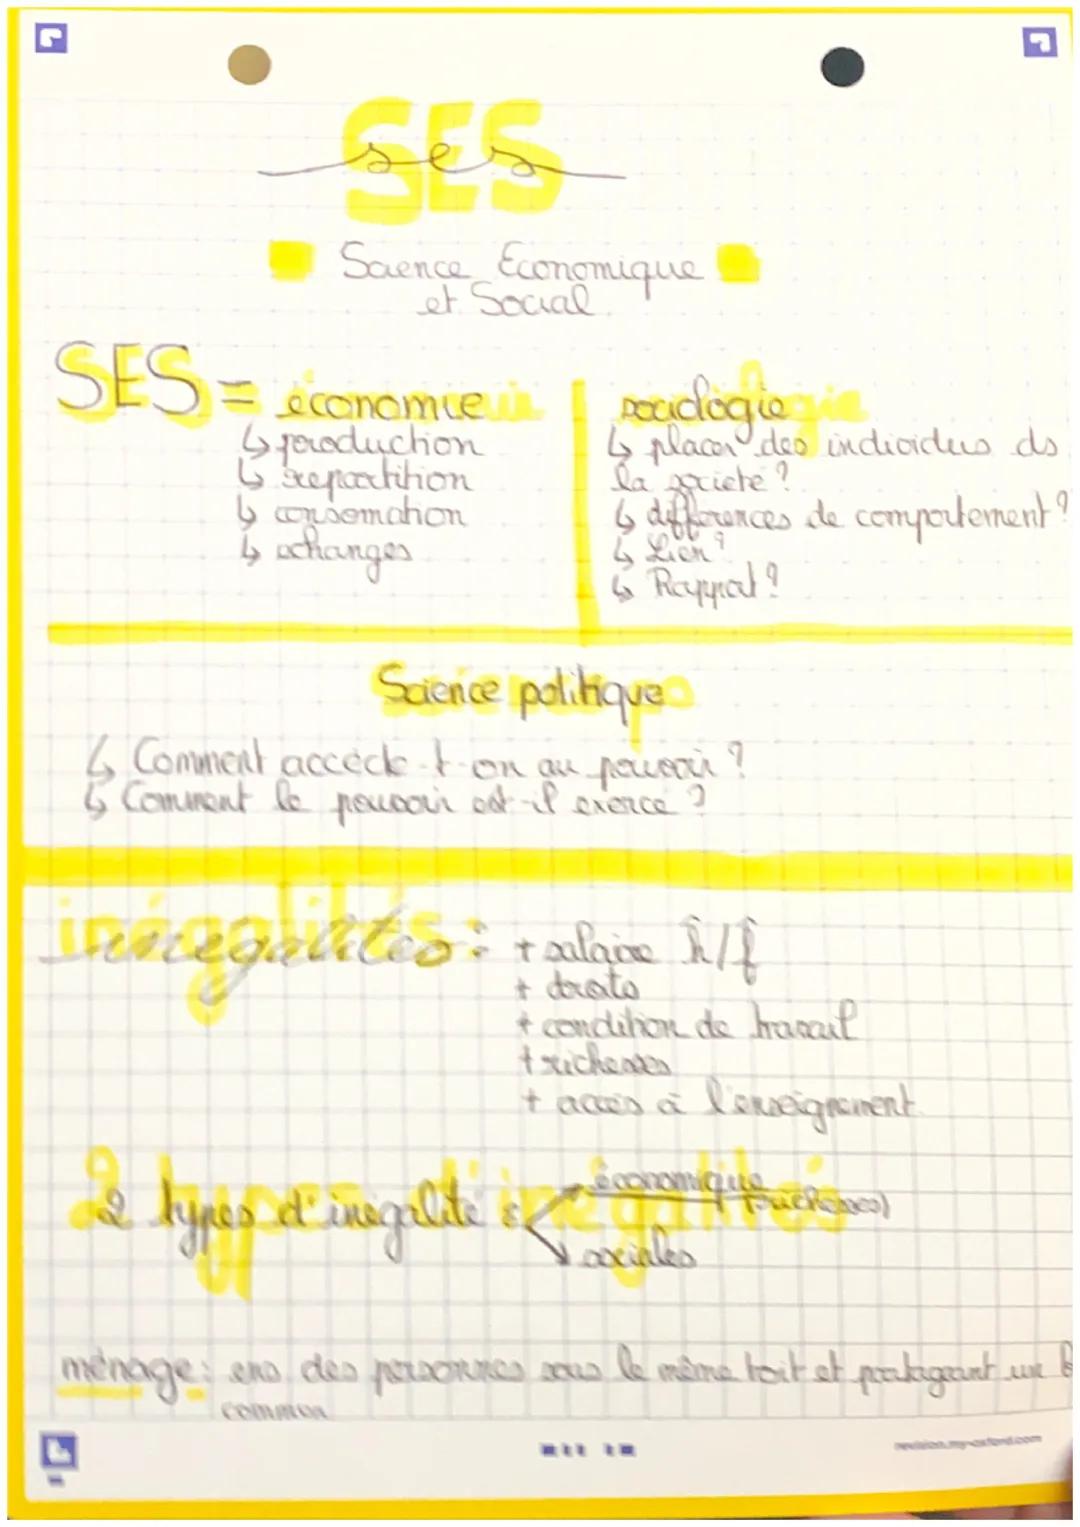 SES
ses
Science Economique
et Social
SES = économie
↳ production
↳ repartition
↳ consomation
↳ echanges
sociologie
↳ placer des individus ds
la societé ?
↳ differences de comportement ?
↳ Lien ?
↳ Rapport ?
Science politique
↳ Comment accède-t-on au pouvoir ?
↳ Comment le pouvoir est-il exercé ?
inégalités : + salaire h/f
+ droits
+ condition de travail
+ richesses
+ accès à l'enseignement
2 types d'inégalité : économique (richesses)
sociales
ménage : ens des personnes sous le même toit et partageant un
common
revision.my-oxford.com